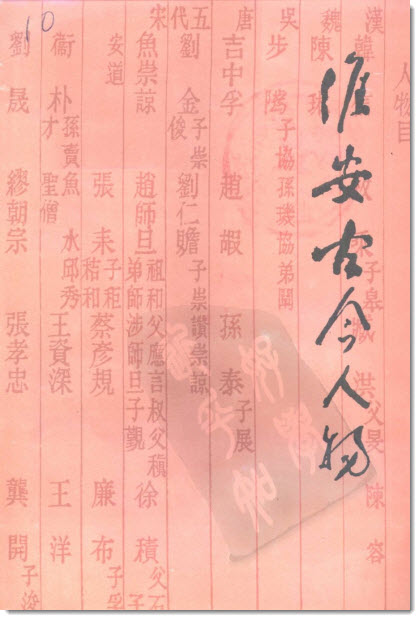 淮安古今人物
人物目
漢 乘 子皋 洪 父旻 陳容
魏 陳
吳 步騭 子協孫璣協弟闡
唐 吉中孚 趙嘏 孫泰 子展
五代 劉金 子崇俊 劉仁贍 子崇讚崇諒
宋 魚崇諒 趙師旦 祖和父應言叔父稹弟師涉師旦子覲 徐積 父石
安道 張耒 子秬秸和 蔡彥規 廉布 子孚
衞朴 孫賣魚 水邱秀才 聖僧 王資深 王洋
劉晟 繆朝宗 張孝忠 龔開 子浚
10